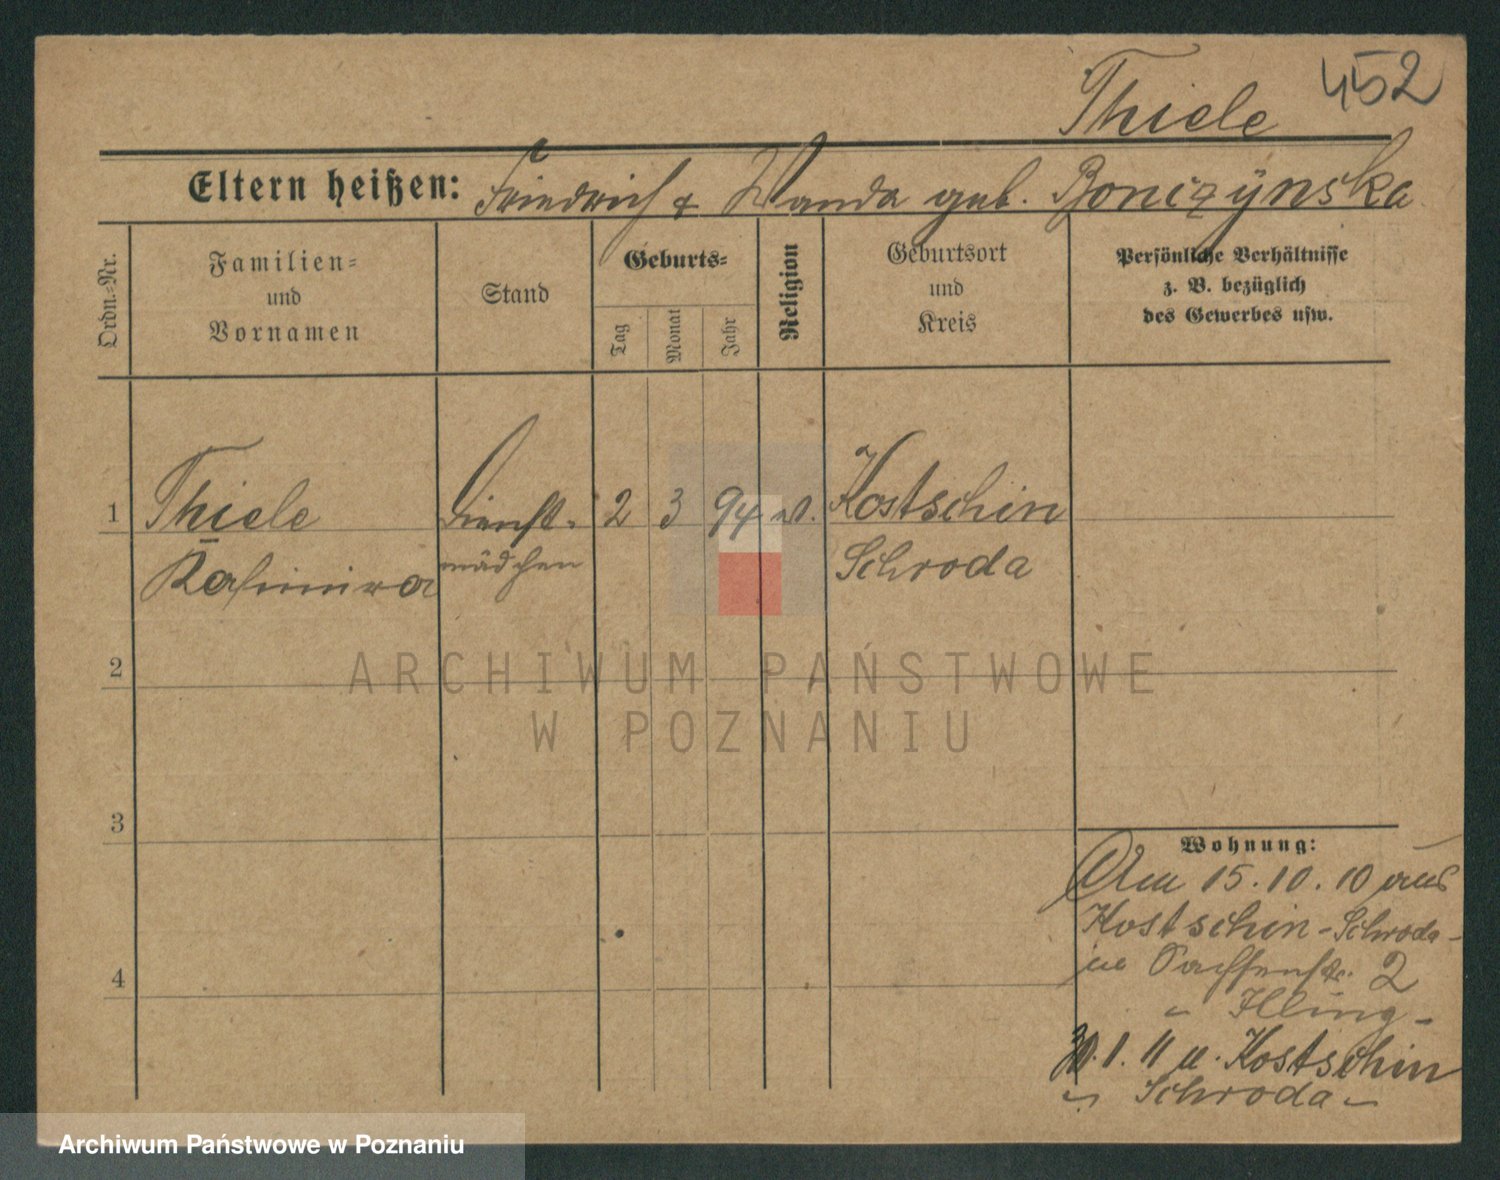 Thiele 452
Eltern heißen: Friedrich & Wanda geb. Boniczÿnska
Ordn.-Nr.
Familien-
und
Vornamen
Stand
Geburts-
Tag
Monat
Jahr
Religion
Geburtsort
und
Kreis
Persönliche Verhältnisse
z. B. bezüglich
des Gewerbes usw.
1 Thiele Dienst- 2 3 94 Kostschin
Kasimira mädchen Schroda
2
3
4
Wohnung:
Am 15.10.10 aus
Kostschin - Schroda -
2
- Illing -
30.1.11 n. Kostschin
- Schroda -
ARCHIWUM PAŃSTWOWE
W POZNANIU
Archiwum Państwowe w Poznaniu